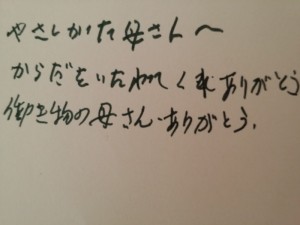 やさしかった母さんへ
からだをいたわってくれありがとう
働き物の母さん、ありがとう。